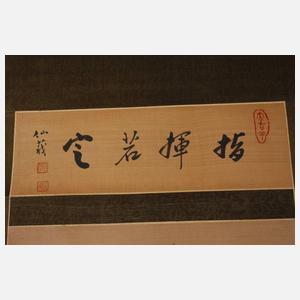 指揮若定
仙義